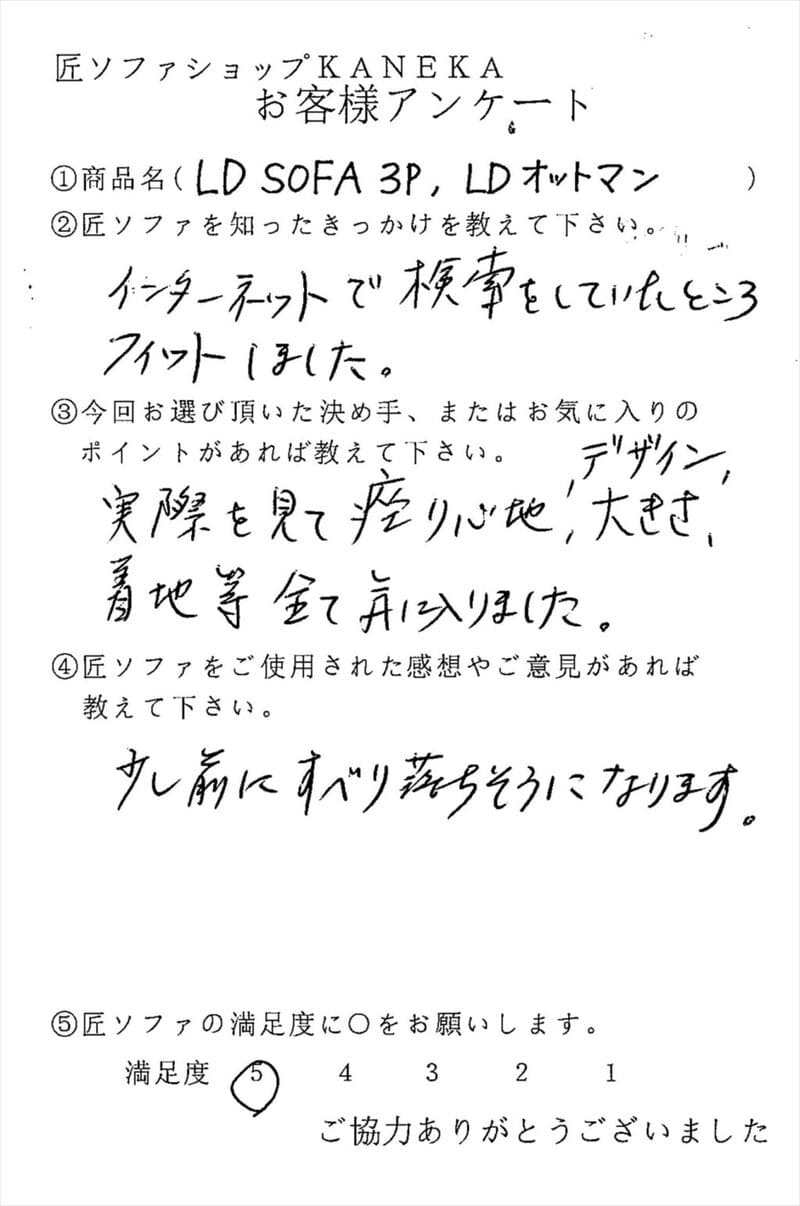 匠ソファショップKANEKA
お客様アンケート
①商品名( LD SOFA 3P, LDオットマン )
②匠ソファを知ったきっかけを教えて下さい。
インターネットで検索をしていたところ
フィットしました。
③今回お選び頂いた決め手、またはお気に入りの
ポイントがあれば教えて下さい。
実際を見て座り心地、デザイン、大きさ、
着地等全て気に入りました。
④匠ソファをご使用された感想やご意見があれば
教えて下さい。
少し前にすべり落ちそうになります。
⑤匠ソファの満足度に〇をお願いします。
満足度 5 4 3 2 1
ご協力ありがとうございました